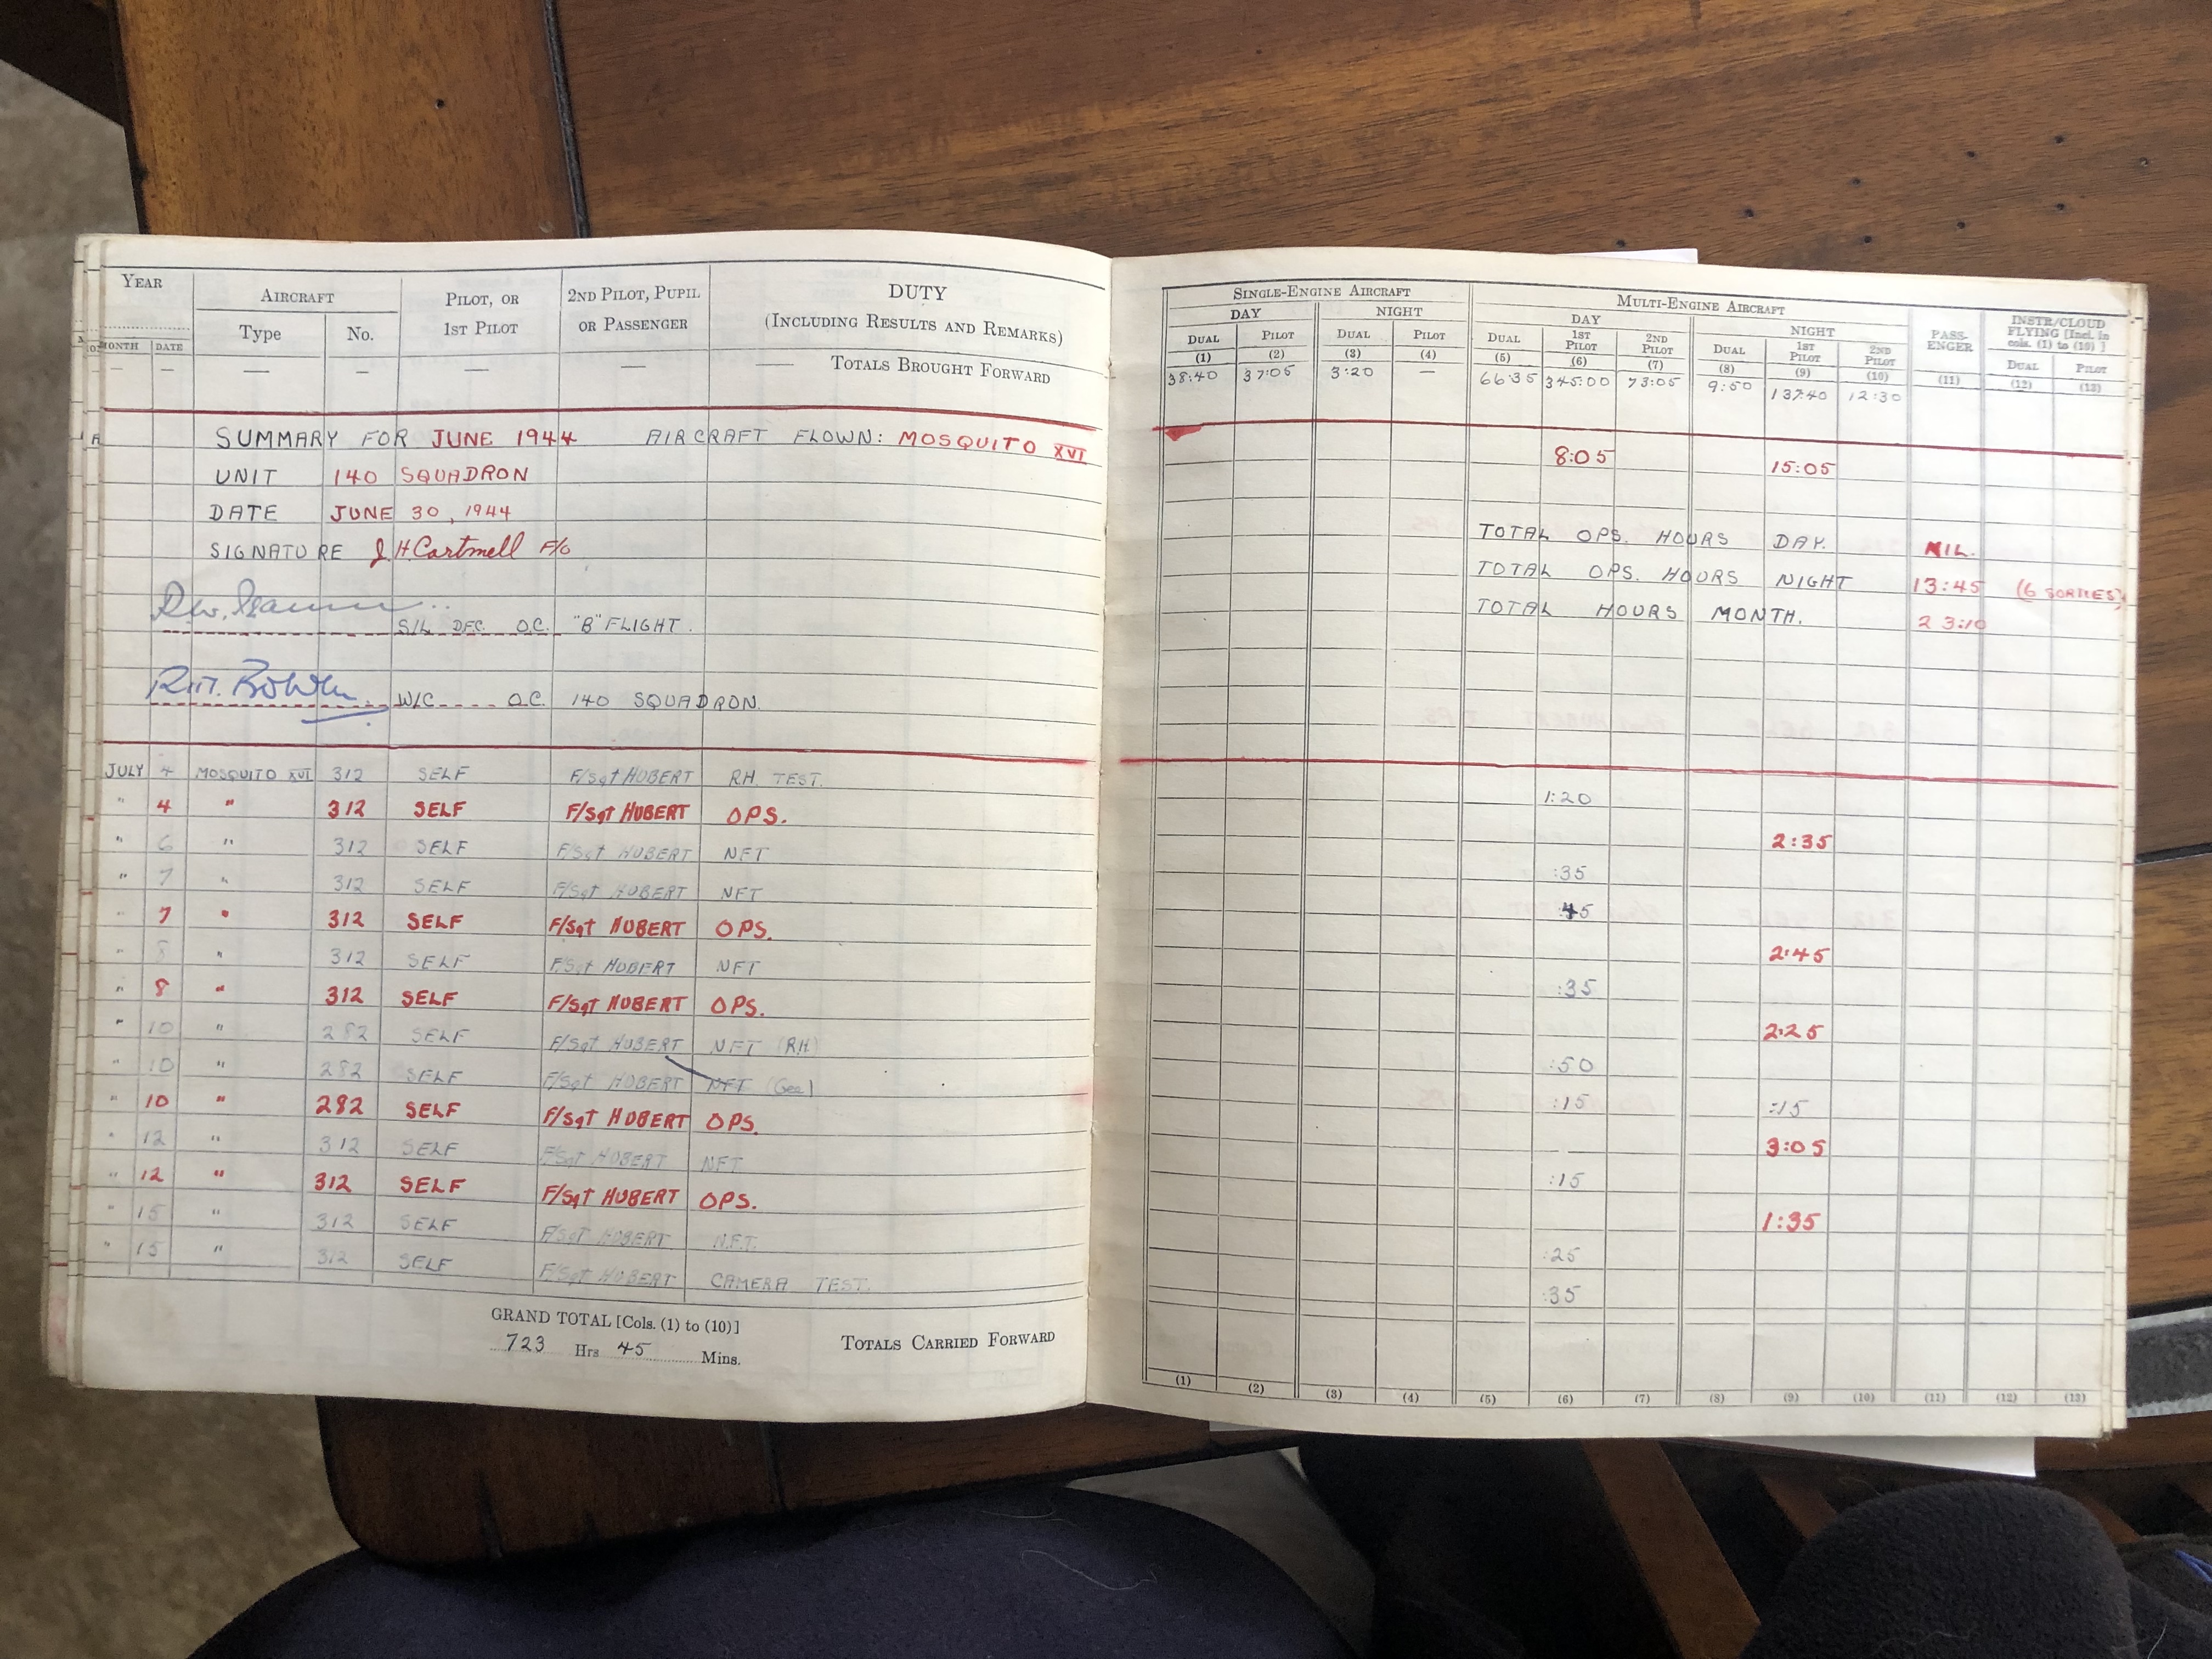 YEAR AIRCRAFT PILOT, OR 1ST PILOT 2ND PILOT, PUPIL OR PASSENGER DUTY (INCLUDING RESULTS AND REMARKS)
MONTH DATE Type No. — — TOTALS BROUGHT FORWARD
SUMMARY FOR JUNE 1944 AIRCRAFT FLOWN: MOSQUITO XVI
UNIT 140 SQUADRON
DATE JUNE 30, 1944
SIGNATURE J.H Cartmell F/O
S/L DFC. O.C. "B" FLIGHT.
W/C O.C. 140 SQUADRON.
JULY 4 MOSQUITO XVI 312 SELF F/Sgt HUBERT RH. TEST.
" 4 " 312 SELF F/Sgt HUBERT OPS.
" 6 " 312 SELF F/Sgt HUBERT NFT
" 7 " 312 SELF F/Sgt HUBERT NFT
" 7 " 312 SELF F/Sgt HUBERT OPS.
" 8 " 312 SELF F/Sgt HUBERT NFT
" 8 " 312 SELF F/Sgt HUBERT OPS.
" 10 " 282 SELF F/Sgt HUBERT NFT (RH)
" 10 " 282 SELF F/Sgt HUBERT NFT (Gee)
" 10 " 282 SELF F/Sgt HUBERT OPS.
" 12 " 312 SELF F/Sgt HUBERT NFT
" 12 " 312 SELF F/Sgt HUBERT OPS.
" 15 " 312 SELF F/Sgt HUBERT N.F.T.
" 15 " 312 SELF F/Sgt HUBERT CAMERA TEST.
GRAND TOTAL [Cols. (1) to (10)]
723 Hrs 45 Mins.
TOTALS CARRIED FORWARD
SINGLE-ENGINE AIRCRAFT MULTI-ENGINE AIRCRAFT PASSENGER INSTR/CLOUD FLYING [Incl. in cols. (1) to (10)]
DAY NIGHT DAY NIGHT
DUAL PILOT DUAL PILOT DUAL 1ST PILOT 2ND PILOT DUAL 1ST PILOT 2ND PILOT DUAL PILOT
(1) (2) (3) (4) (5) (6) (7) (8) (9) (10) (11) (12) (13)
38:40 37:05 3:20 — 66:35 345:00 73:05 9:50 137:40 12:30
8:05 15:05
TOTAL OPS. HOURS DAY. NIL.
TOTAL OPS. HOURS NIGHT 13:45 (6 SORTIES)
TOTAL HOURS MONTH. 23:10
1:20
2:35
:35
:45
2:45
:35
2:25
:50
:15 :15
3:05
:15
1:35
:25
:35
(1) (2) (3) (4) (5) (6) (7) (8) (9) (10) (11) (12) (13)